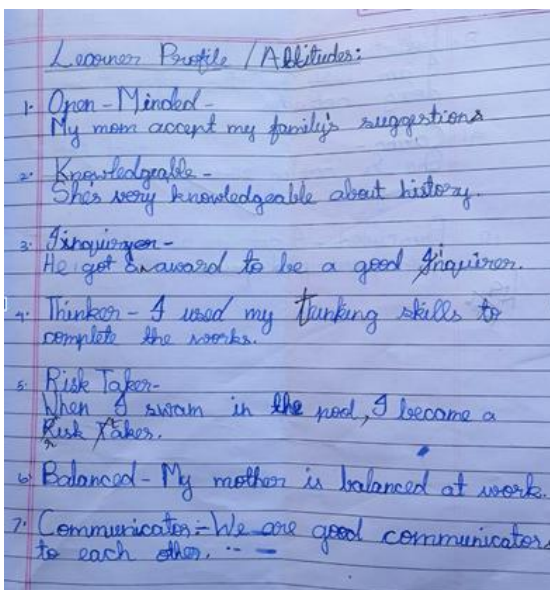 Learner Profile / Attitudes:
1. Open-Minded -
My mom accept my family's suggestions
2. Knowledgeable -
She's very knowledgeable about history.
3. Inquirer -
He got an award to be a good Inquirer.
4. Thinker - I used my thinking skills to
complete the works.
5. Risk Taker-
When I swam in the pool, I became a
Risk Taker.
6. Balanced - My mother is balanced at work.
7. Communicator:- We are good communicators
to each other.